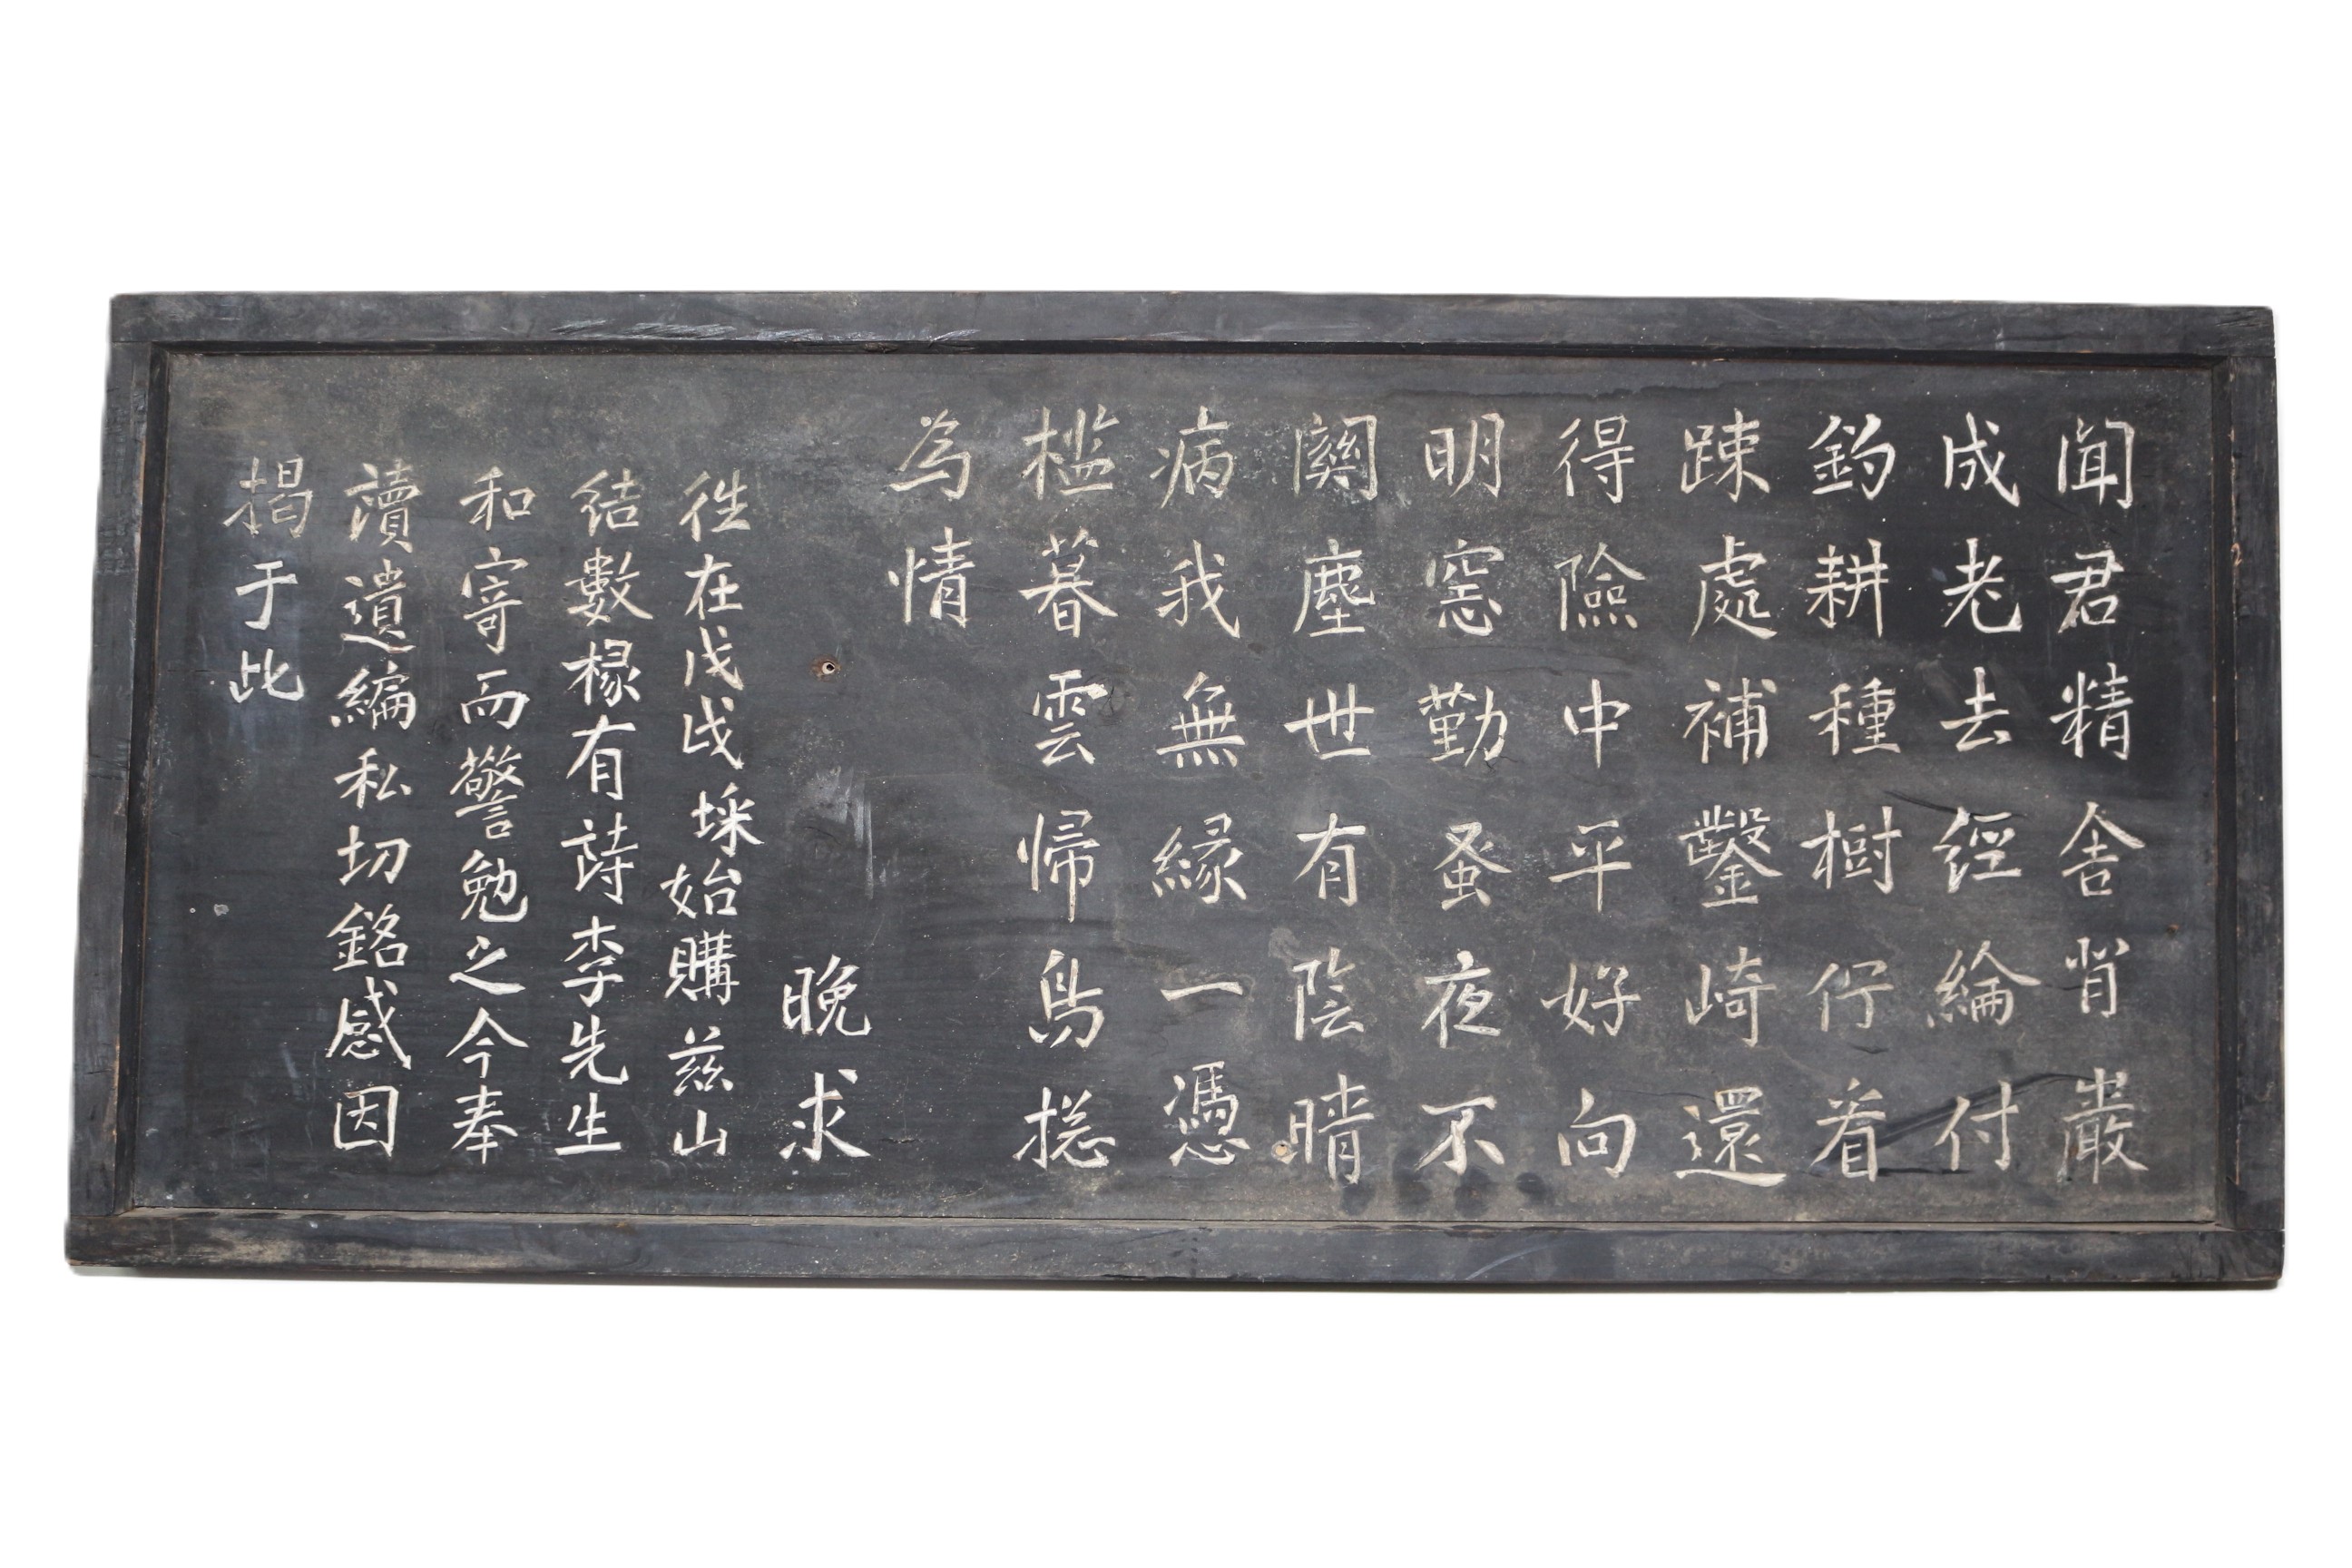 聞君精舍肯巖
成老去經綸付
釣耕種樹佇看
踈處補鑿崎還
得險中平好向
明窓勤蚤夜不
關塵世有陰晴
病我無緣一憑
檻暮雲帰鳥揔
為情
晩求
徃在戊戌埰始購茲山
結數椽有詩李先生
和寄而警勉之今奉
讀遺編私切銘感因
揭于此